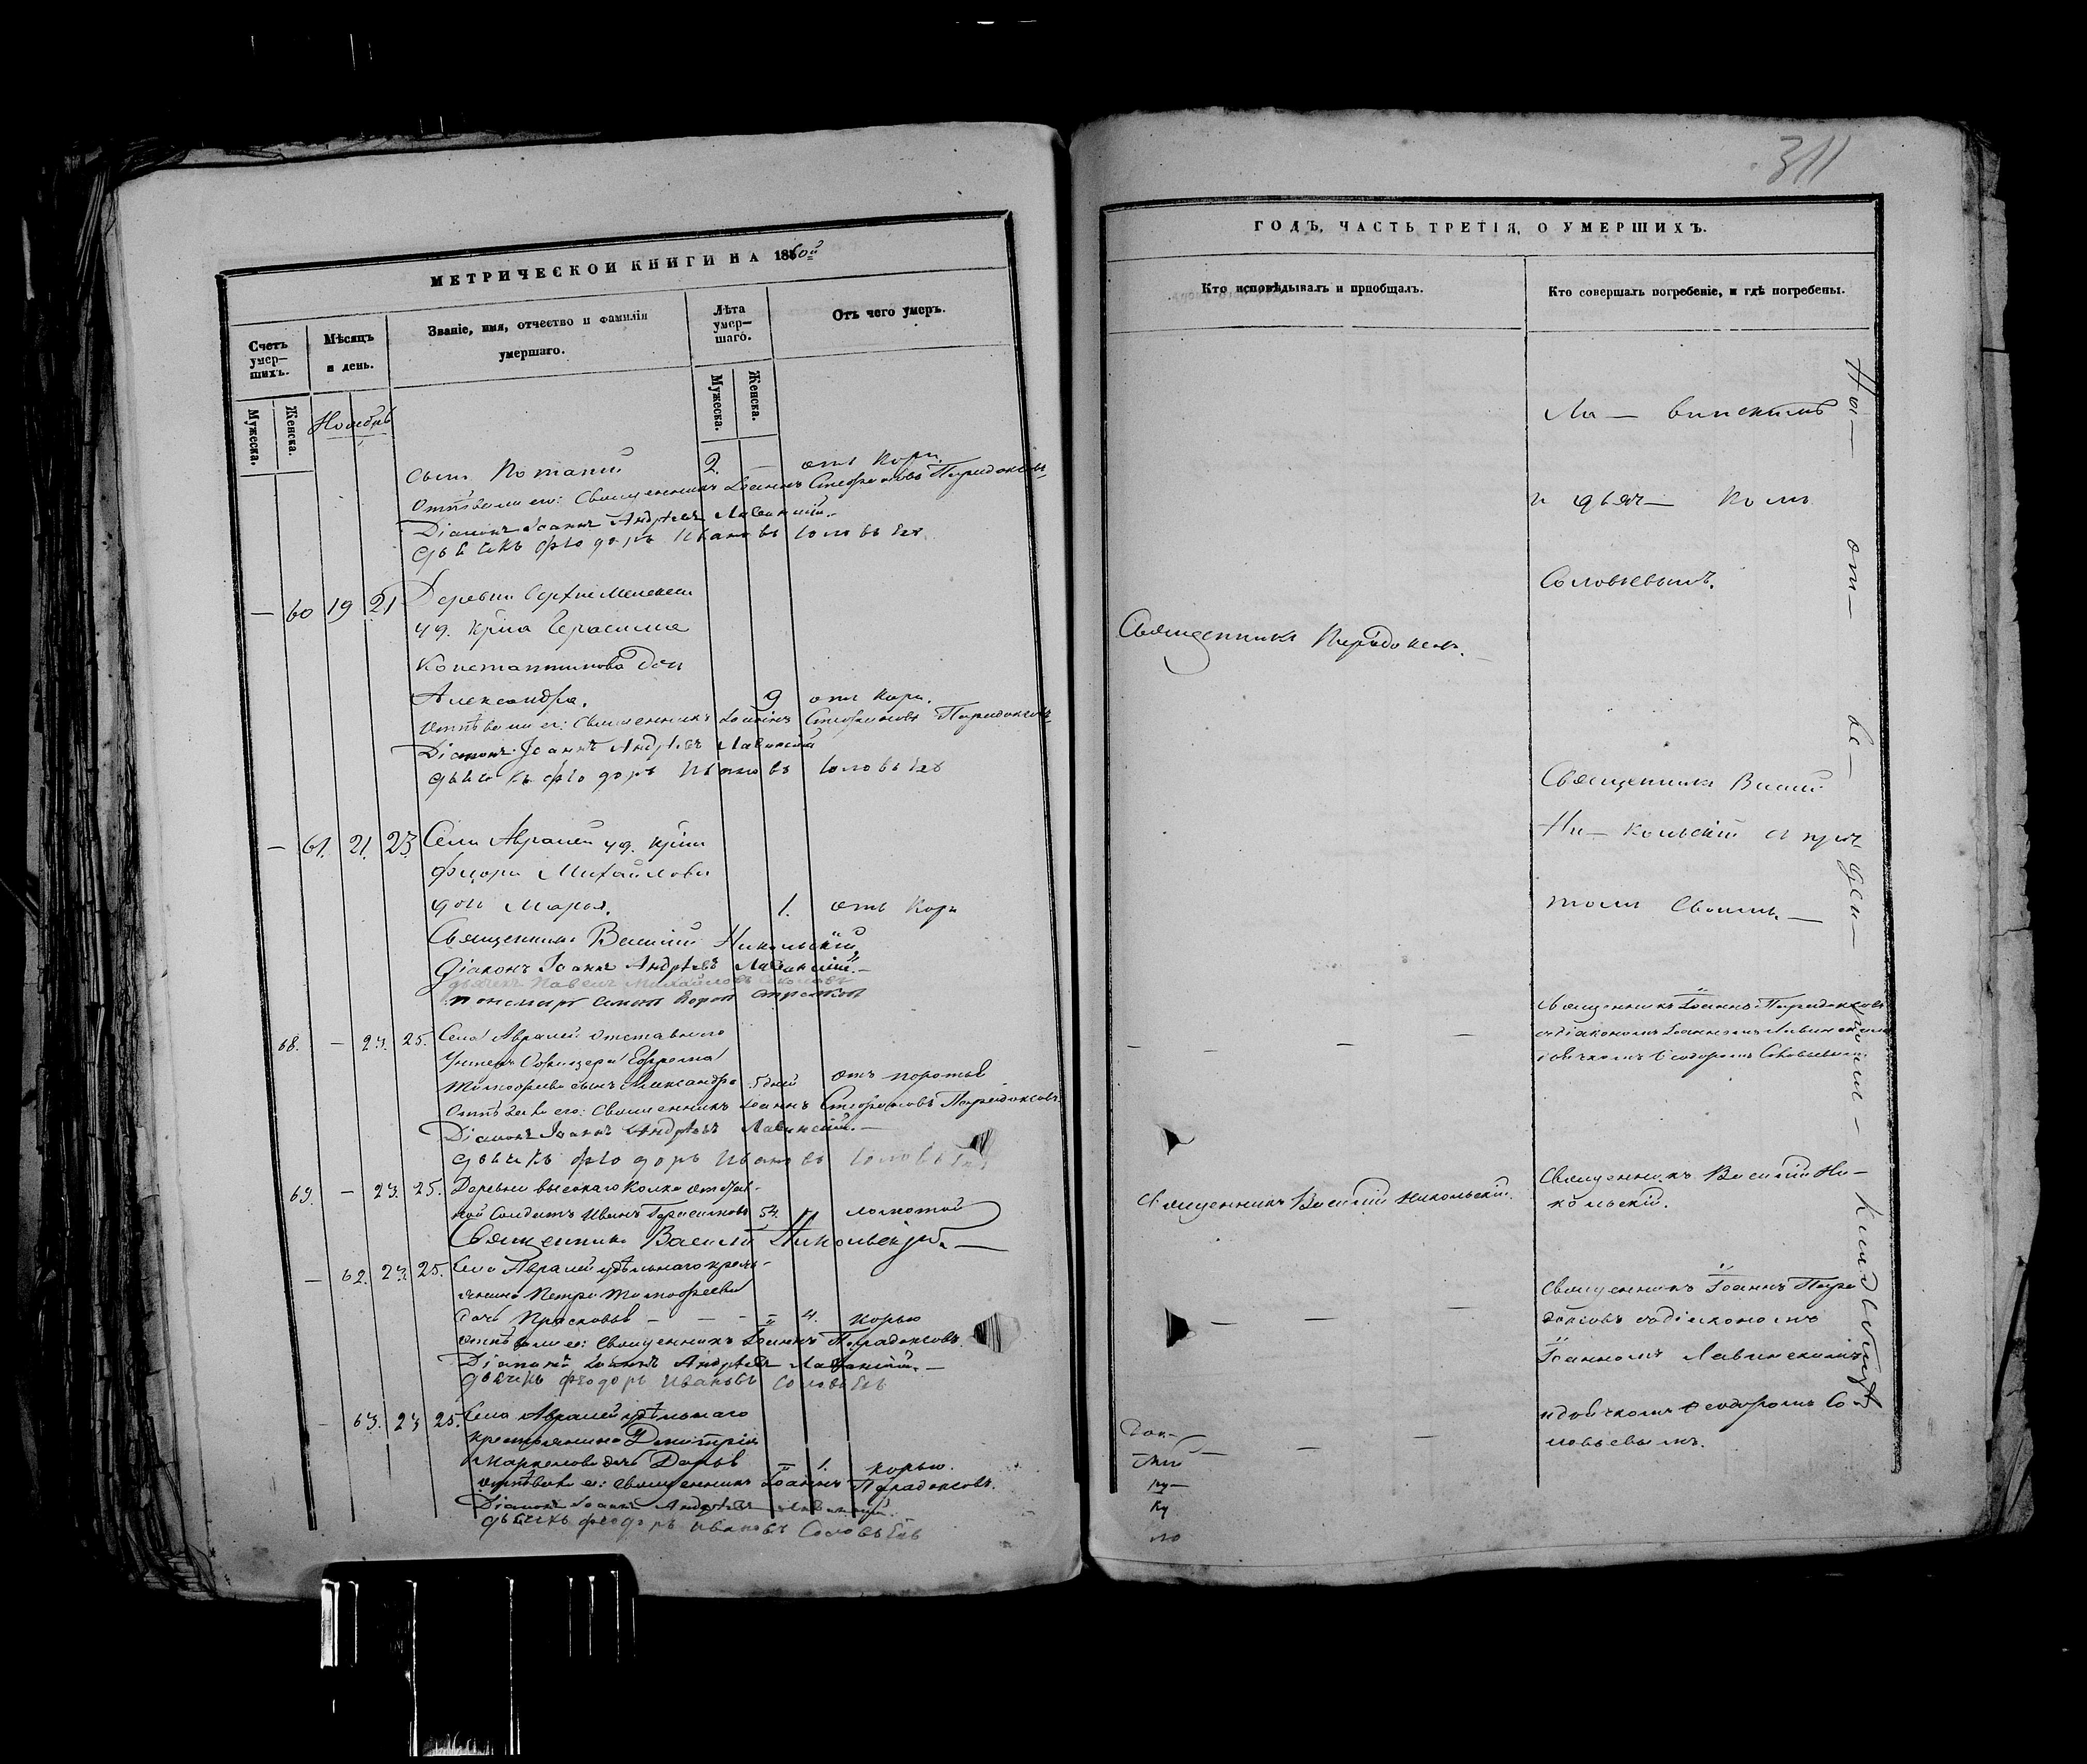 311
МЕТРИЧЕСКОЙ КНИГИ НА 1860й
Счетъ умер—шихъ.
Мужеска.
Женска.
Мѣсяцъ и день.
Званіе, имя, отчество и фамилія умершаго.
Лѣта умер—шаго.
Мужеска.
Женска.
Отъ чего умеръ.
Ноябрь
сынъ Потапій 2. — отъ Кори.
Отпѣвали его: Священникъ Іоаннъ Стефановъ Парадоксовъ
Діаконъ Іоаннъ Андреевъ Лавинскій.
дьячекъ Феодоръ Ивановъ Соловьевъ
— 60 19 21 Деревни
уд. Крна Герасима
Константинова Дочь
Александра. 9 отъ Кори.
Отпѣвали ее: Священникъ Іоаннъ Стефановъ Парадоксовъ
Діаконъ Іоаннъ Андреевъ Лавинскій
дьячекъ Феодоръ Ивановъ Соловьевъ
— 61. 21. 23. Села Авралей уд. крна
Михайлова
дочь Марья. 1. отъ Кори
Священникъ Василій Никольскій
Діаконъ Іоаннъ Андреевъ Лавинскій.—
дьячекъ Павелъ Михайловъ
пономарь
68. — 23. 25. Села Авралей отставного
Унтеръ Офицера Ефрема
Тимофеева сынъ Александръ 5 дней отъ
Отпѣвали его: Священникъ Іоаннъ Стефановъ Парадоксовъ
Діаконъ Іоаннъ Андреевъ Лавинскій.—
дьячекъ Феодоръ Ивановъ Соловьевъ
69. — 23. 25. Деревни высокаго Колка отстав-
ной Солдатъ Иванъ Герасимовъ 54. " ломотой
Священникъ Василій Никольскій.—
— 62. 23. 25. Села Авралей удѣльнаго кресть-
янина Петра Тимофеева
дочь Прасковья — — - " 4. Корью
отпѣвали ее: Священникъ Іоаннъ Парадоксовъ.
Діаконъ Іоаннъ Андреевъ Лавинскій.—
дьячекъ Феодоръ Ивановъ Соловьевъ
— 63. 23 25. Села Авралей удѣльнаго
крестьянина Димитрія
Маркелова дочь Дарья " 1. корью.
отпѣвали ее: Священникъ Іоаннъ Парадоксовъ.
Діаконъ Іоаннъ Андреевъ Лавинскій.
дьячекъ Феодоръ Ивановъ Соловьевъ
ГОДЪ, ЧАСТЬ ТРЕТІЯ, О УМЕРШИХЪ.
Кто исповѣдывалъ и пріобщалъ.
Кто совершалъ погребеніе, и гдѣ погребены.
Ла— винскимъ
и дьяч— комъ
Соловьевымъ.
Священникъ Парадоксовъ.
Священникъ Василій
Ни— кольскій съ прич-
томъ своимъ.—
— — — —
Священникъ Іоаннъ Парадоксовъ
съ діакономъ Іоанномъ Лавинскимъ
и дьячкомъ Феодоромъ Соловьевымъ
Священникъ Василій Никольскій.
Священникъ Василій Ни—
кольскій.
— — — —
Священникъ Іоаннъ Пара
доксовъ съ діакономъ
Іоанномъ Лавинскимъ
и дьячкомъ Феодоромъ Со
ловьевымъ.
— — —
На— от— ве— ден— номъ— кладбищѣ
ку